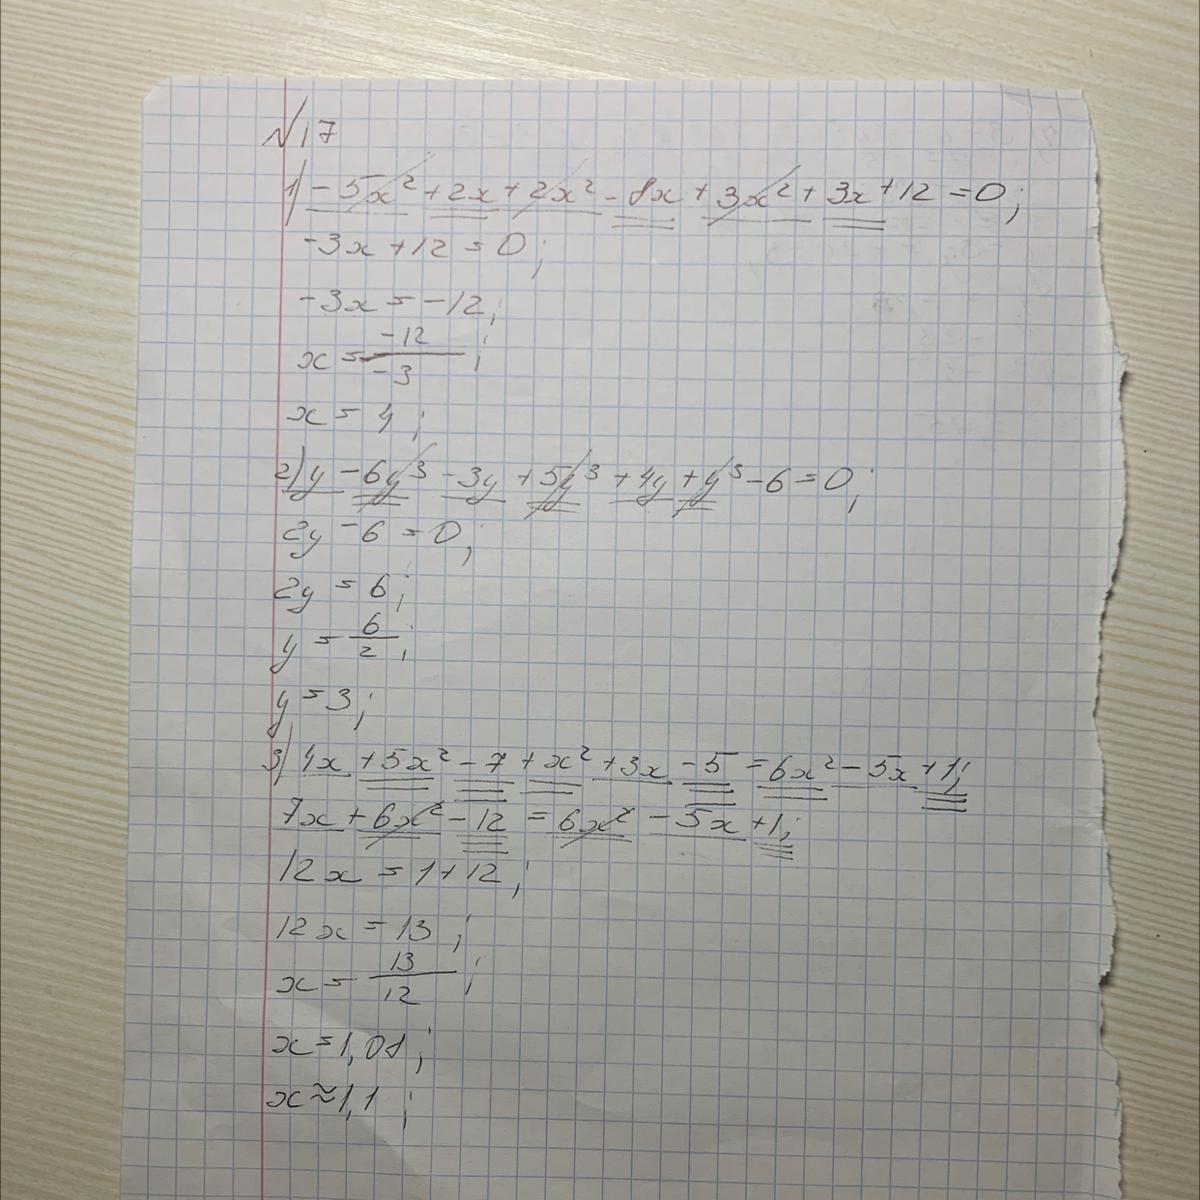 №17
1) -5x² + 2x + 2x² - 8x + 3x² + 3x + 12 = 0;
-3x + 12 = 0;
-3x = -12;
x = -12/-3;
x = 4;
2) y - 6y³ - 3y + 5y³ + 4y + y³ - 6 = 0;
2y - 6 = 0;
2y = 6;
y = 6/2;
y = 3;
3) 4x + 5x² - 7 + x² + 3x - 5 = 6x² - 5x + 1;
7x + 6x² - 12 = 6x² - 5x + 1;
12x = 1 + 12;
12x = 13;
x = 13/12;
x = 1,08;
x ≈ 1,1;